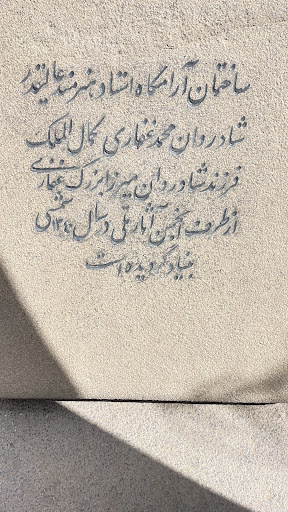 ساختمان آرامگاه استاد هنرمند عالیقدر
شادروان محمد غفاری کمال الملک
فرزند شادروان میرزا بزرگ غفاری
از طرف انجمن آثار ملی در سال شمسی
بنیاد گردیده است